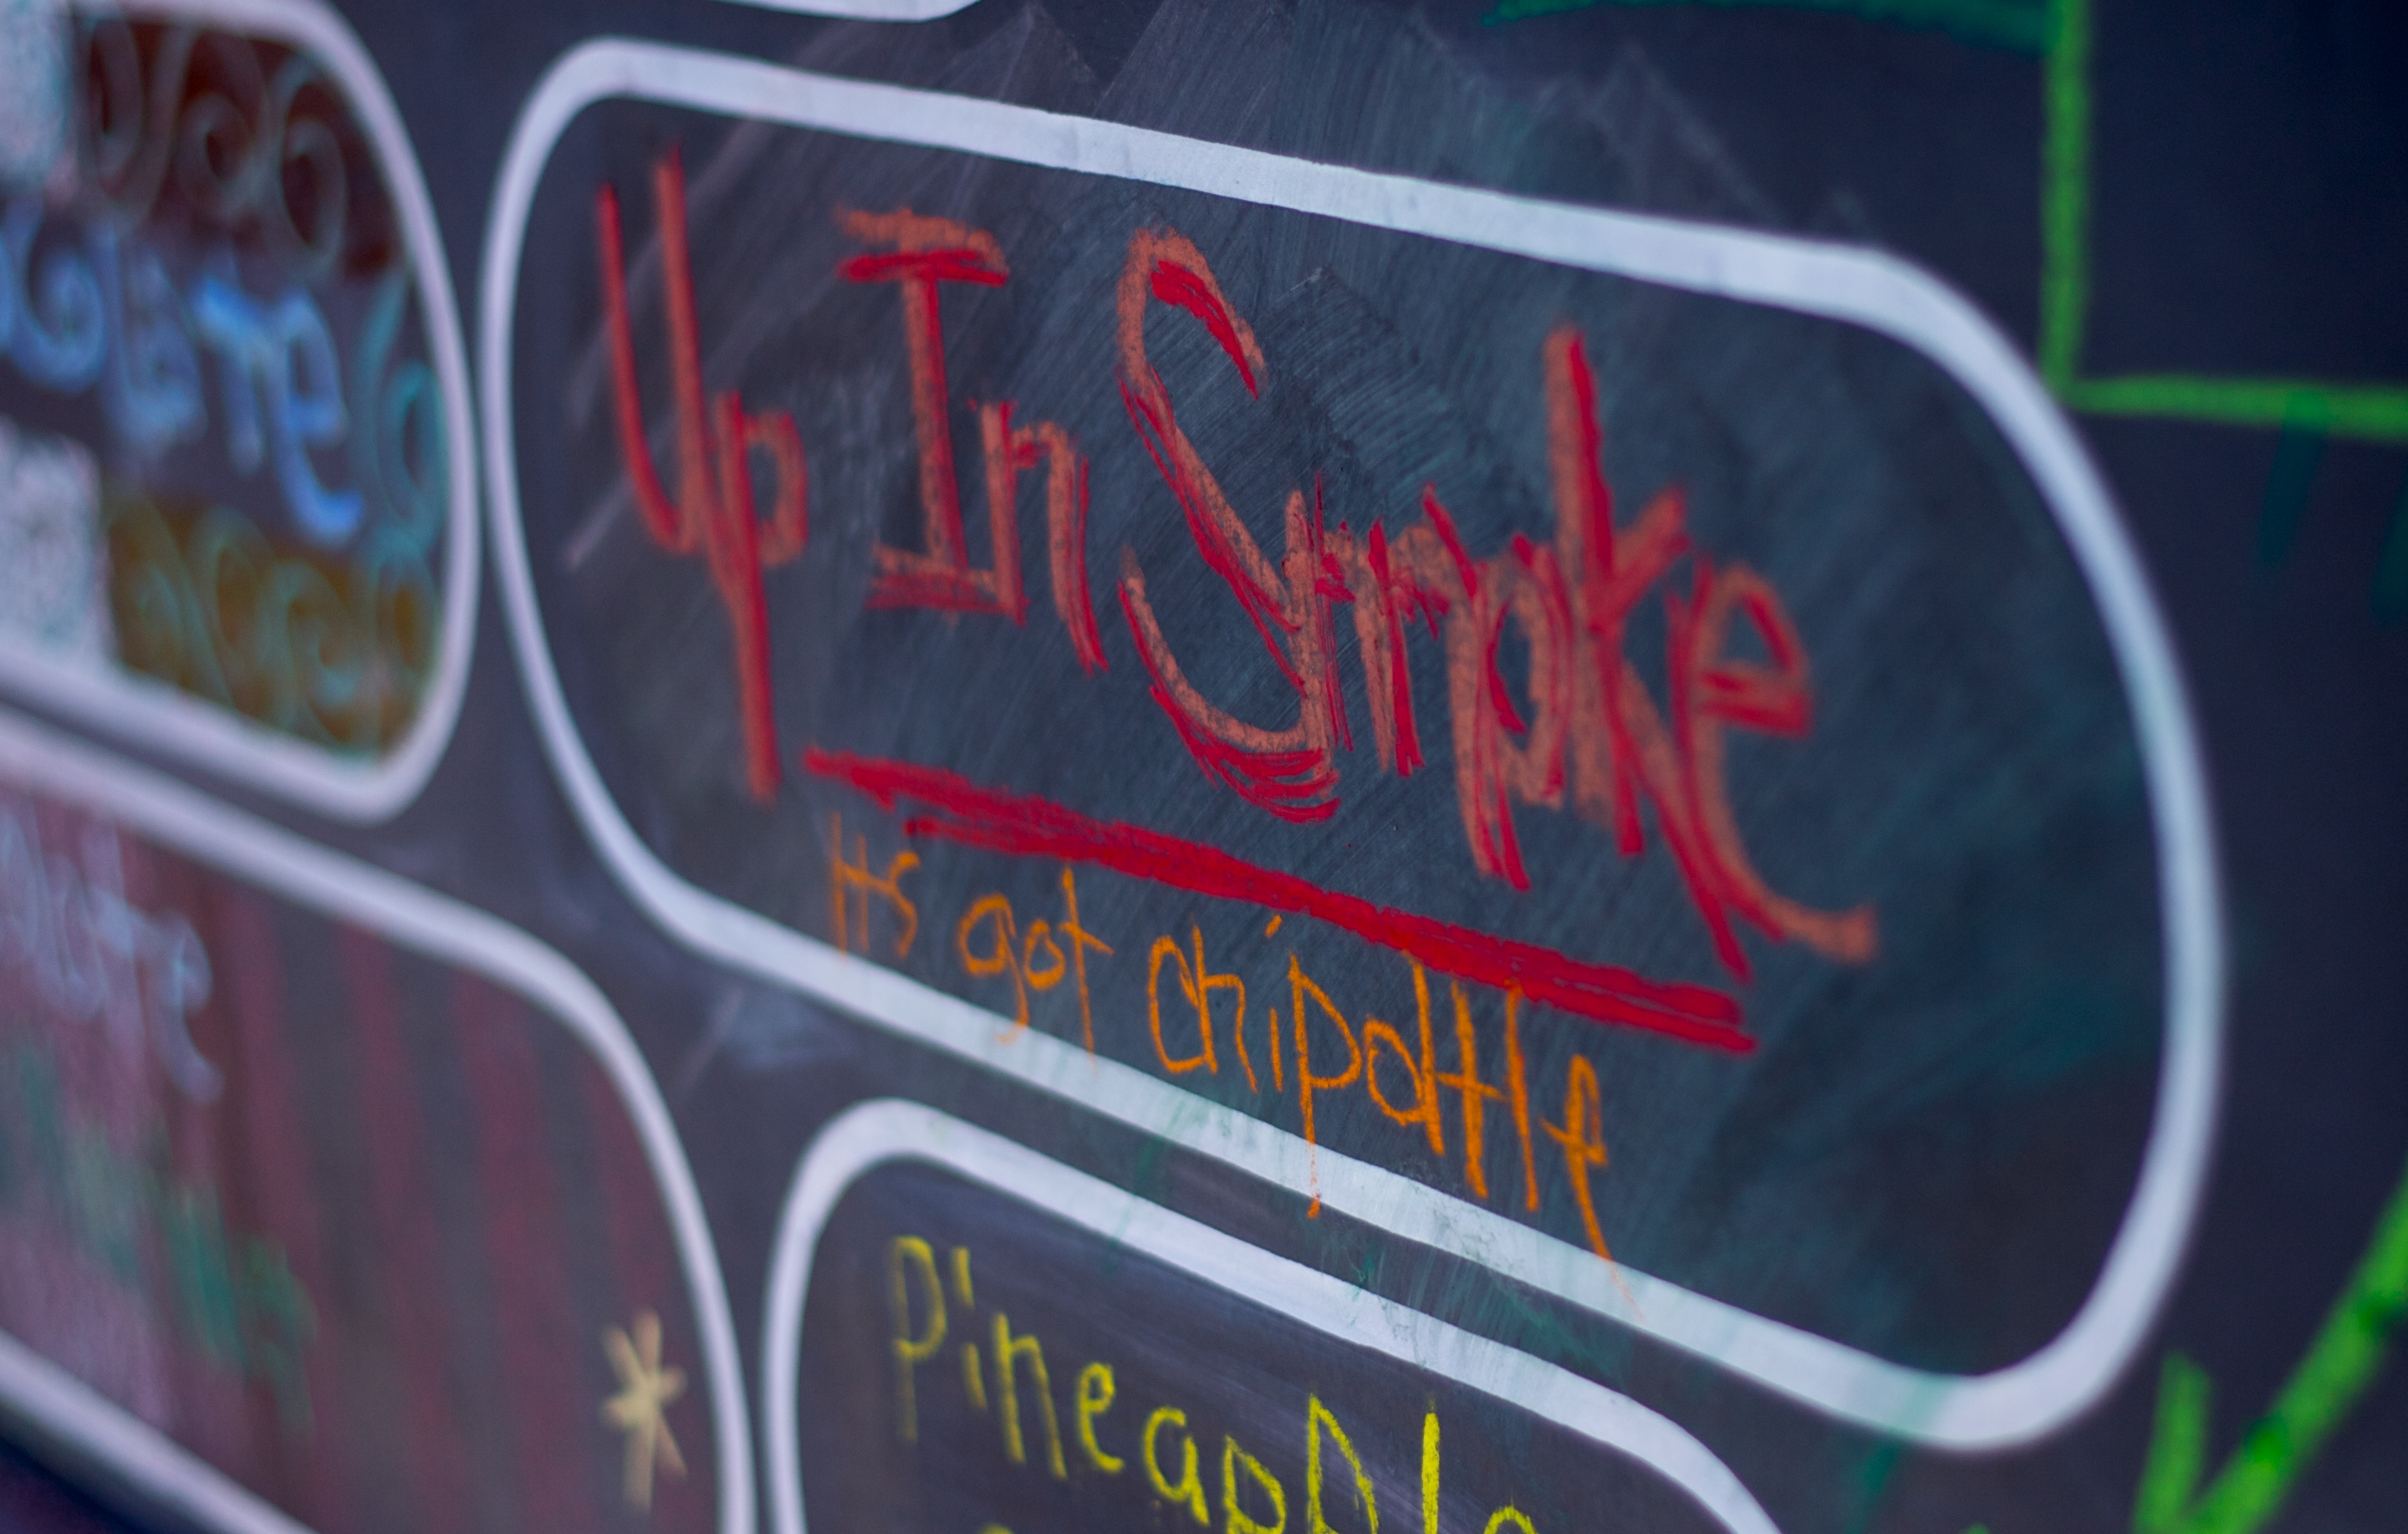 Up In Smoke
Its got chipottle
Pineapple